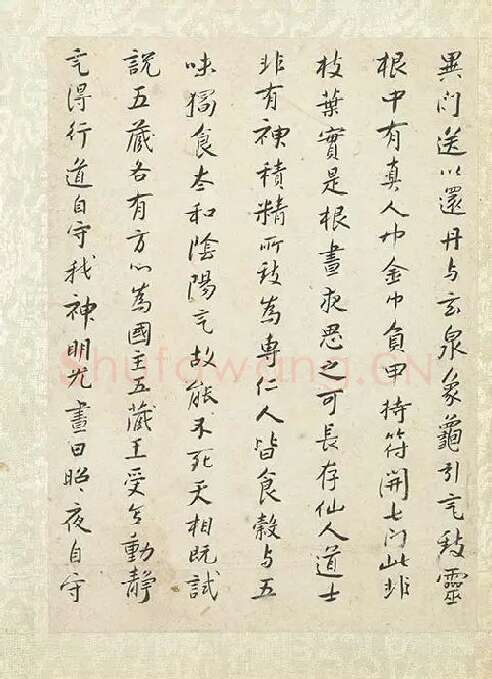 異門送以還丹与玄泉象龜引气致靈
根中有真人巾金巾負甲持符開七門此非
枝葉實是根晝夜思之可長存仙人道士
非有神積精所致為專仁人皆食穀与五
味獨食太和陰陽气故能不死天相既試
說五藏各有方心為國主五藏王受意動靜
气得行道自守我神明光晝日昭〻夜自守
Shufawang.CN